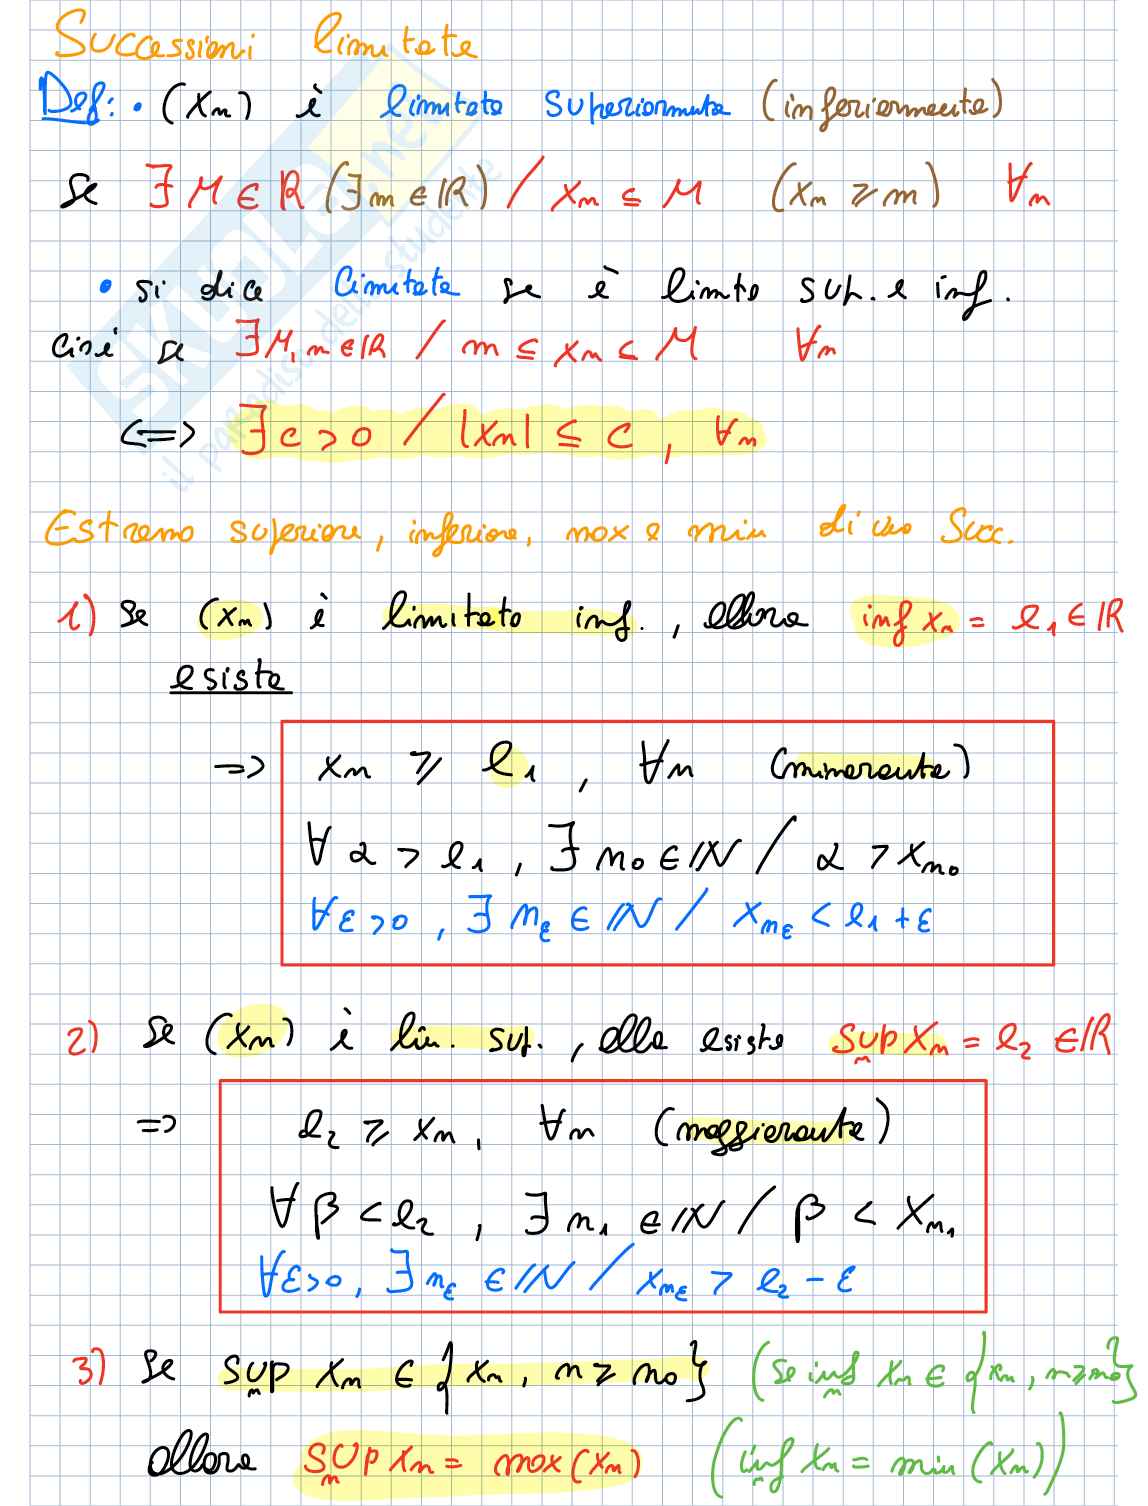 Successioni limitate
Def: • (xn) è limitata superiormente (inferiormente)
se ∃ M ∈ ℝ (∃ m ∈ ℝ) / xn ≤ M (xn ≥ m) ∀n
• si dice limitata se è limta sup. e inf.
cioè se ∃ M, m ∈ ℝ / m ≤ xn ≤ M ∀n
⟺ ∃ c > 0 / |xn| ≤ c , ∀n
Estremo superiore, inferiore, max e min di una Succ.
1) Se (xn) è limitata inf. , allora inf xn = l1 ∈ ℝ
esiste
⇒ xn ≥ l1 , ∀n (minorante)
∀ α > l1 , ∃ n0 ∈ ℕ / α > xn0
∀ε>0 , ∃ nε ∈ ℕ / xnε < l1 + ε
2) Se (xn) è lim. sup. , allora esiste sup xn = l2 ∈ ℝ
n
⇒ l2 ≥ xn , ∀n (maggiorante)
∀ β < l2 , ∃ n1 ∈ ℕ / β < xn1
∀ε>0, ∃ nε ∈ ℕ / xnε > l2 - ε
3) Se sup xn ∈ {xn, n ≥ n0} (se inf xn ∈ {xn, n ≥ n0}
n n
allora sup xn = max (xn) (inf xn = min (xn))
n n
SKUOLA.net
il paradiso dello studente